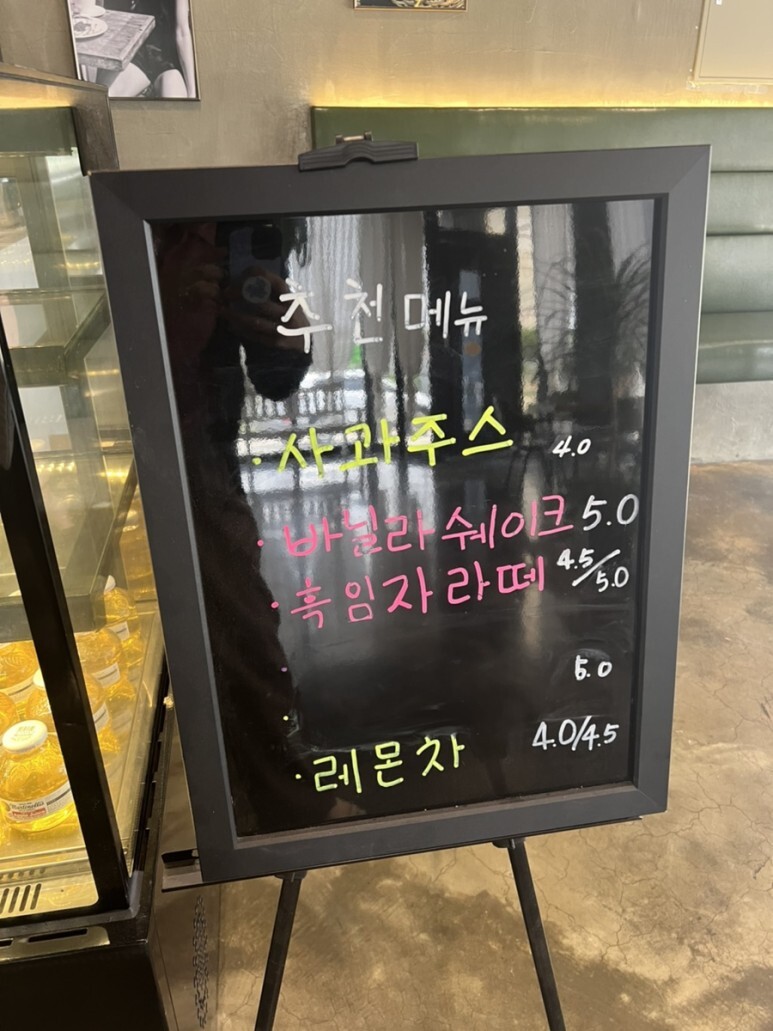 추천메뉴
· 사과주스 4.0
· 바닐라쉐이크 5.0
· 흑임자라떼 4.5/5.0
· 5.0
·
· 레몬차 4.0/4.5